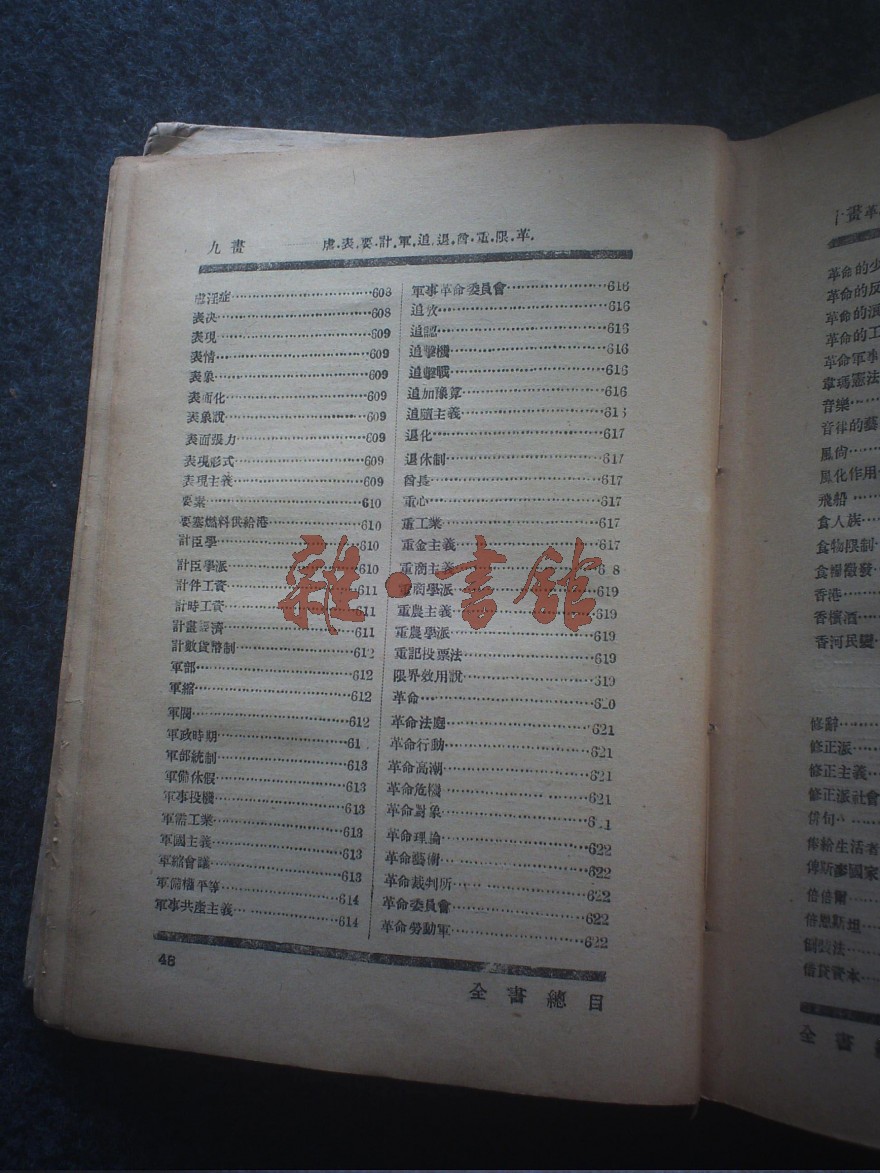 九畫 虐.表.要.計.軍.追.退.酋.重.限.革.
虐淫症 608
表决 608
表現 609
表情 609
表象 609
表面化 609
表象說 609
表面張力 609
表現形式 609
表現主義 609
要素 610
要塞燃料供給港 610
計臣學 610
計臣學派 610
計件工資 611
計時工資 611
計畫經濟 611
計數貨幣制 612
軍部 612
軍縮 612
軍閥 612
軍政時期 61
軍部統制 613
軍備休假 613
軍事投機 613
軍需工業 613
軍國主義 613
軍縮會議 613
軍備權平等 614
軍事共產主義 614
軍事革命委員會 616
追放 616
追認 616
追擊機 616
追擊戰 616
追加預算 616
追隨主義 616
退化 617
退休制 617
酋長 617
重心 617
重工業 617
重金主義 617
重商主義 6 8
重商學派 619
重農主義 619
重農學派 619
重記投票法 619
限界效用說 619
革命 620
革命法廳 621
革命行動 621
革命高潮 621
革命危機 621
革命對象 621
革命理論 622
革命藝術 622
革命裁判所 622
革命委員會 622
革命勞動軍 622
48
全書總目
雜·書館
十畫 革
革命的少
革命的反
革命的
革命的工
革命軍事
韋瑪憲法
音樂
音律的藝
風尙
風化作用
飛船
食人族
食物限制
食糧徵發
香港
香檳酒
香河民變
修辭
修正派
修正主義
修正派社會
俳句
俸給生活者
俾斯麥國家
倍倍爾
倍恩斯坦
倒裝法
借貸資本
全書總